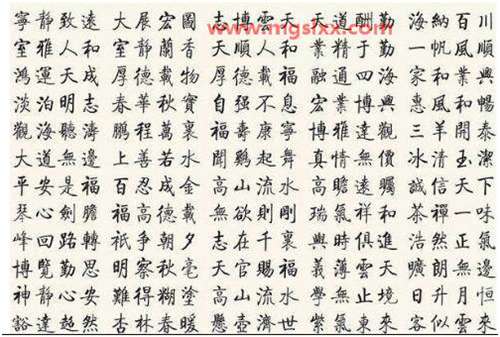 www.mgslxx.com
寧靜致遠 大展宏圖 志博雲天 天道酬勤 海納百川
室雅人和 室靜蘭香 大順人和 業精于勤 一帆風順
鴻運天成 厚德載物 厚德載福 融通四海 家和業興
淡泊明志 春華秋實 自强不息 宏業博興 惠風和暢
觀海聽濤 鵬程萬裏 福壽康寧 博雅達觀 三羊開泰
大道無邊 上善若水 聞鷄起舞 真情無價 冰清玉潔
平安是福 百忍成金 高山流水 高瞻遠矚 誠信天下
琴心劍膽 福高德載 無欲則剛 瑞氣祥和 茶禪一味
峰回路轉 祇爭朝夕 志在千裏 與時俱進 浩然正氣
博覽勤思 明察秋毫 天官賜福 義薄雲天 曠朗無邊
神靜心安 難得糊塗 高山流水 學無止境 日升月恒
豁達超然 杏林春暖 懸壺濟世 紫氣東來 客似雲來